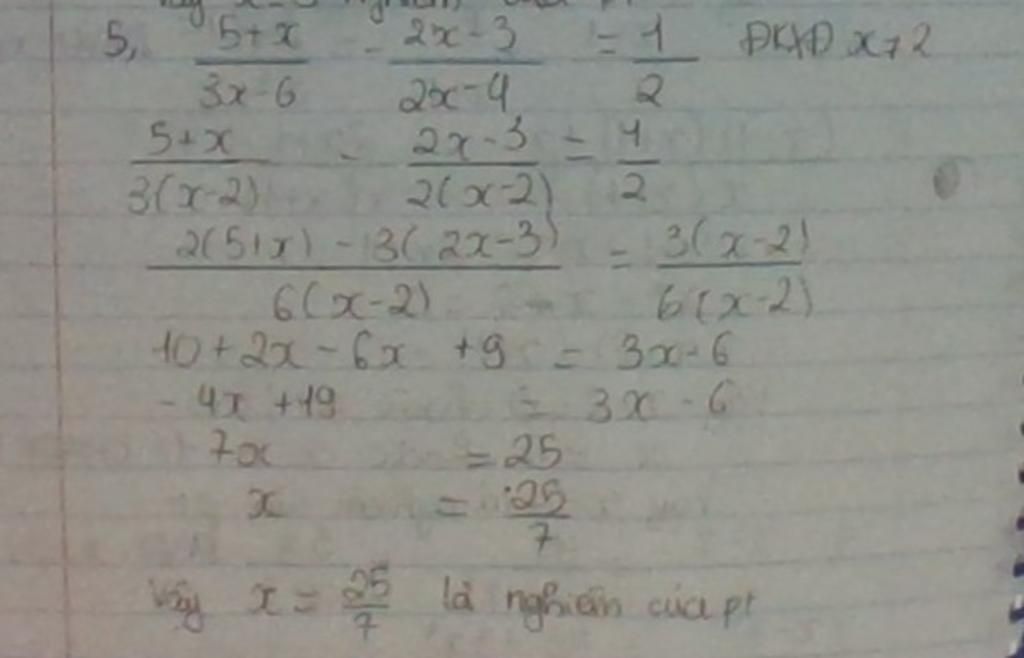 5, \frac{5+x}{3x-6} - \frac{2x-3}{2x-4} = \frac{1}{2} ĐKXĐ x≠2
\frac{5+x}{3(x-2)} - \frac{2x-3}{2(x-2)} = \frac{1}{2}
\frac{2(5+x) - 3(2x-3)}{6(x-2)} = \frac{3(x-2)}{6(x-2)}
10+2x-6x+9 = 3x-6
-4x+19 = 3x-6
7x = 25
x = \frac{25}{7}
Vậy x = \frac{25}{7} là nghiệm của pt